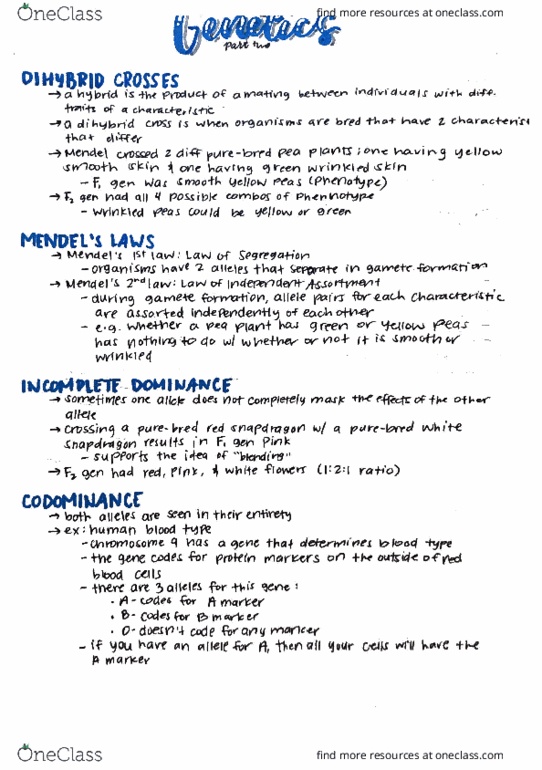 OneClass
find more resources at oneclass.com
Genetics
Part two
DIHYBRID CROSSES
→ a hybrid is the product of a mating between individuals with diff.
traits of a characteristic
→ a dihybrid cross is when organisms are bred that have 2 characterist
that differ
→ Mendel crossed 2 diff pure-bred pea plants; one having yellow
smooth skin & one having green wrinkled skin
- F₁ gen was smooth yellow peas (phenotype)
→ F₂ gen had all 4 possible combos of phenotype
- wrinkled peas could be yellow or green
MENDEL'S LAWS
→ Mendel's 1st law: Law of Segregation
- organisms have 2 alleles that separate in gamete formation
→ Mendel's 2nd law: Law of Independent Assortment
- during gamete formation, allele pairs for each characteristic
are assorted independently of each other
- e.g. whether a pea plant has green or yellow peas
has nothing to do w/ whether or not it is smooth or
wrinkled
INCOMPLETE DOMINANCE
→ sometimes one allele does not completely mask the effects of the other
allele
→ crossing a pure-bred red snapdragon w/ a pure-bred white
snapdragon results in F₁ gen pink
- supports the idea of "blending"
→ F₂ gen had red, pink, & white flowers (1:2:1 ratio)
CODOMINANCE
→ both alleles are seen in their entirety
→ ex: human blood type
- chromosome 9 has a gene that determines blood type
- the gene codes for protein markers on the outside of red
blood cells
- there are 3 alleles for this gene:
• A - codes for A marker
• B - codes for B marker
• O - doesn't code for any marker
- if you have an allele for A, then all your cells will have the
A marker
OneClass
find more resources at oneclass.com